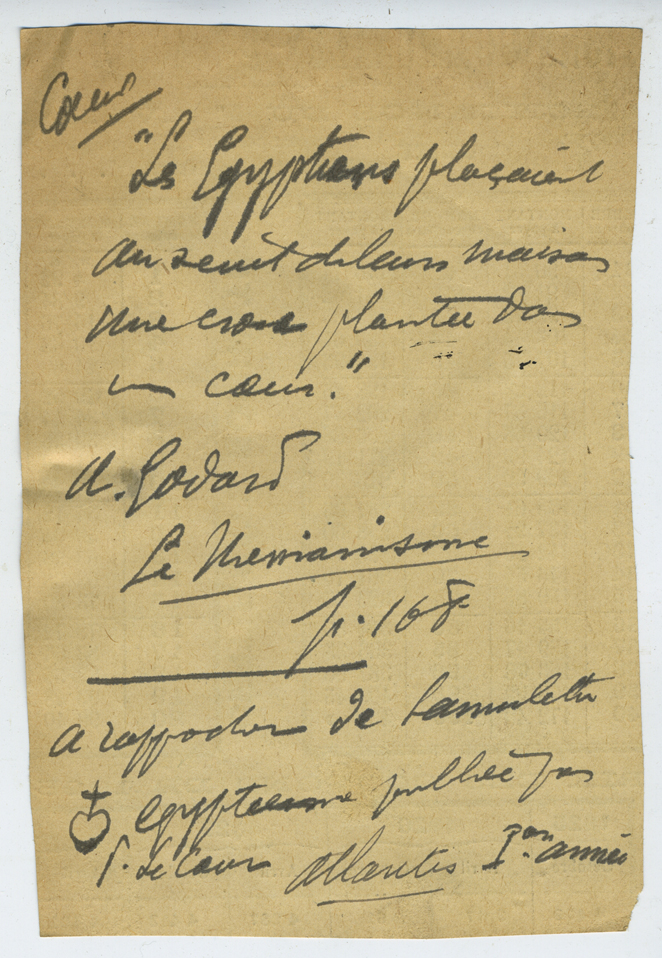 Coeur
"Les Egyptiens plaçaient
au zenit de leurs maisons
une croix plantée dans
un coeur."
A. Godard
Le Messianisme
p. 168
A rapprocher de l'amulette
egyptienne publiée par
P. Le Cour Atlantis Iere année